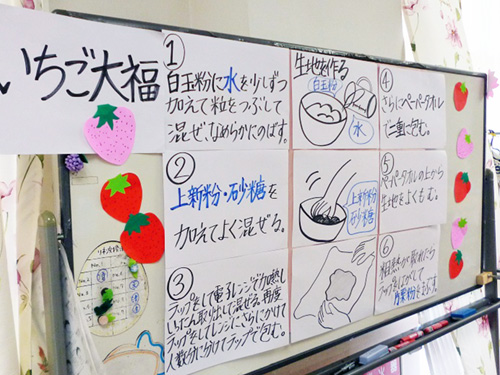 いちご大福
①
白玉粉に水を少しずつ
加えて粒をつぶして
混ぜ、なめらかにのばす。
②
上新粉・砂糖を
加えてよく混ぜる。
③
ラップをして電子レンジで加熱し
いったん取り出して混ぜる。再度
ラップをしてレンジにさらにかけて
人数分に分けてラップで包む。
生地を作る
白玉粉
水
上新粉
砂糖
④
さらにペーパータオル
で二重に包む。
⑤
ペーパータオルの上から
生地をよくもむ。
⑥
粗熱が取れたら
ラップをはがして
片栗粉をまぶす。